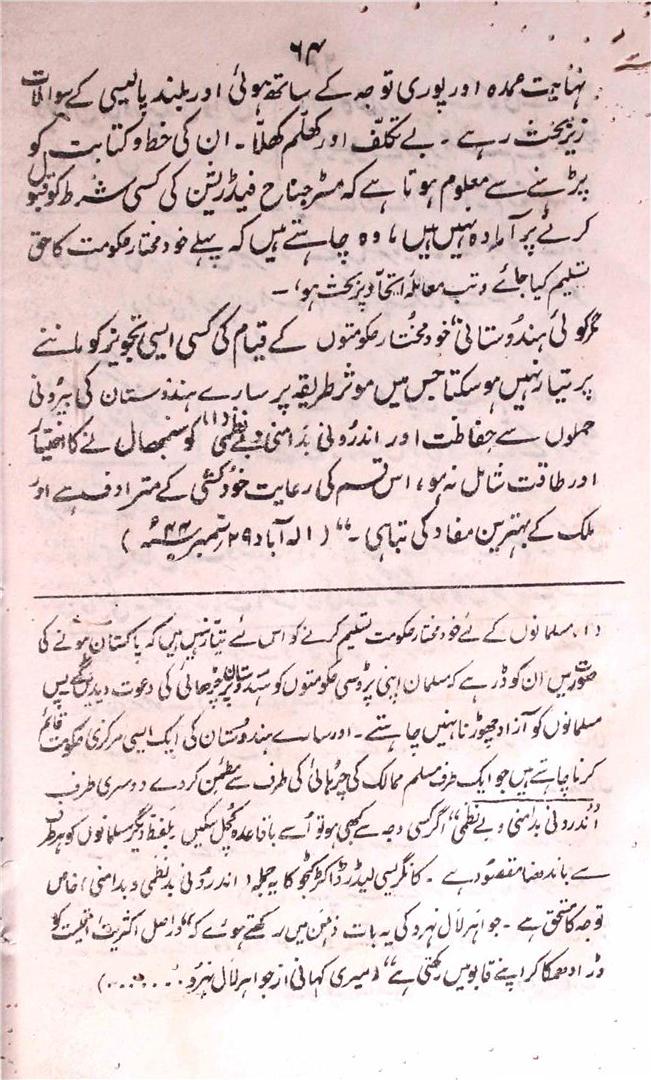 ۶۴
نہایت عمدہ اور پوری توجہ کے ساتھ ہوئی اور بلند پالیسی کے سوالات
زیر بحث رہے ۔ بے تکلف اور کھلّم کھلّا ۔ ان کی خط و کتابت کو
پڑہنے سے معلوم ہوتا ہے کہ مسٹر جناح فیڈریشن کی کسی شرط کو قبول
کرنے پر آمادہ نہیں ہیں ، وہ چاہتے ہیں کہ پہلے خود مختار حکومت کا حق
تسلیم کیا جائے و تب معاملہ اتحاد زیر بحث ہو ، ۔
مگر کوئی ہندوستانی ، خود مختار حکومتوں کے قیام کی کسی ایسی تجویز کو ماننے
پر تیار نہیں ہو سکتا جس میں موثر طریقہ پر سارے ہندوستان کی بیرونی
حملوں سے حفاظت اور اندرونی بدامنی و بے نظمی (۱) کو سنبھال نے کا اختیار
اور طاقت شامل نہ ہو ، اس قسم کی رعایت خودکشی کے مترادف ہے اور
ملک کے بہترین مفاد کی تباہی ۔" ( الہ آباد ۲۹ ستمبر ۴۴ء )
(۱) مسلمانوں کے لئے خود مختار حکومت تسلیم کرنے کو اس لئے تیار نہیں ہیں کہ پاکستان ہونے کی
صورت میں ان کو ڈر ہے کہ مسلمان اپنی پڑوسی حکومتوں کو ہندوستان پر چڑھائی کی دعوت دیدیں گے پس
مسلمانوں کو آزاد چھوڑنا نہیں چاہتے ۔ اور سارے ہندوستان کی ایک ایسی مرکزی حکومت قائم
کرنا چاہتے ہیں جو ایک طرف مسلم ممالک کی چڑہائی کی طرف سے مطمئن کر دے دوسری طرف
اندرونی بدامنی و بے نظمی" اگر کسی وجہ سے کبھی ہو تو اُسے باقاعدہ کچل سکیں بلفظ دیگر مسلمانوں کو ہر طرف
سے باندھنا مقصود ہے ۔ کانگریسی لیڈر ڈاکٹر کٹجو کا یہ جملہ ( اندرونی بدنظمی و بدامنی ) خاص
توجہ کا مستحق ہے ۔ جواہر لال نہرو کی یہ بات ذہن میں رکھتے ہوئے کہ "دراصل اکثریت اقلیت کو
ڈرا دھمکا کر اپنے قابو میں رکھتی ہے" (میری کہانی از جواہر لال نہرو ........)